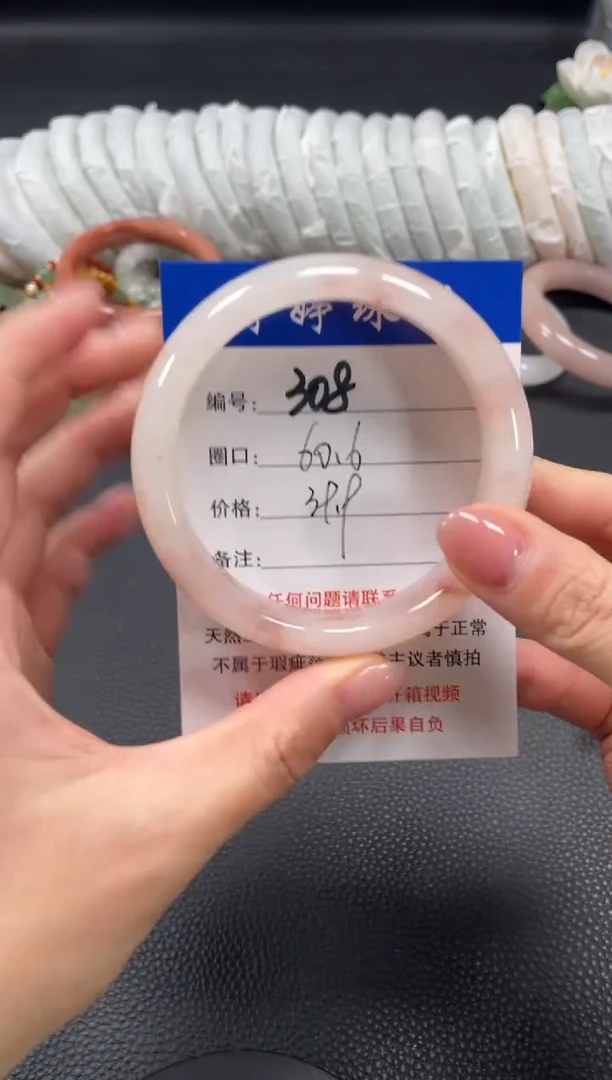 婷
编号: 308
圈口: 60.6
价格:
备注:
任何问题请联系
天然 于正常
不属于瑕疵 主议者慎拍
请 箱视频
损坏后果自负